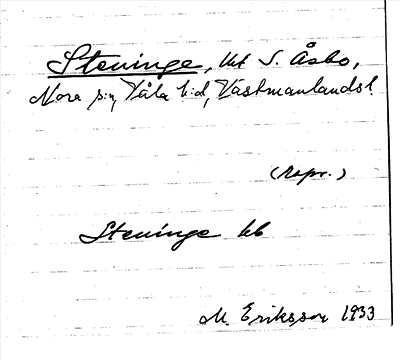 Steninge, ht S. Åsbo,
Nora sn, Våla hd, Västmanlandsl.
(Rspr.)
Steninge hb
M. Eriksson 1933